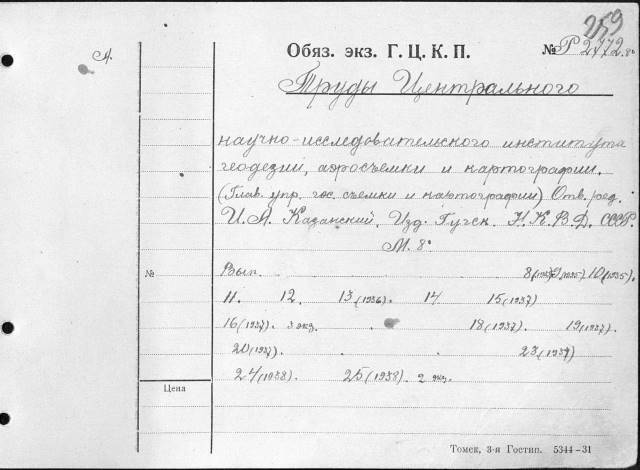 259
А.
Обяз. экз. Г. Ц. К. П. № Р 2772. 8°
Труды Центрального
научно-исследовательского института
геодезии, аэросъемки и картографии.
(Глав. упр. гос. съемки и картографии) Отв. ред.
И. А. Казанский. Изд. Гугск. Н. К. В. Д. СССР.
М. 8°
№ Вып. 8 9(1935) 10(1935).
11. 12. 13(1936). 14 15(1937)
16(1937). 3 экз. 18(1937). 19(1937).
20(1937). 23(1937)
24(1938). 25(1938). 2 экз.
Цена
Томск, 3-я Гостип. 5344-31